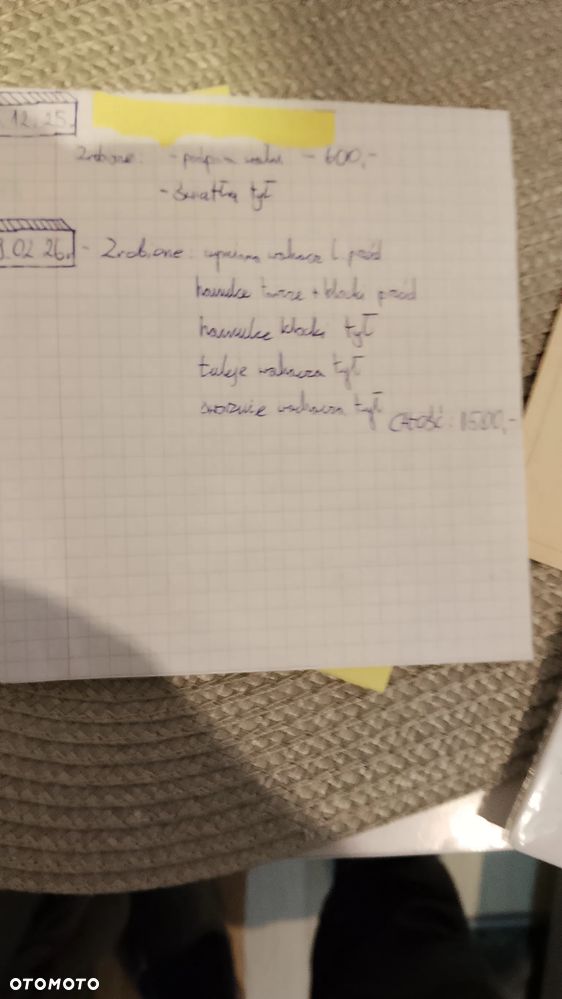 12.25.
Zrobione: - podpora wału - 600,-
- światła tył
.02.26r. - Zrobione: wymiana wahacz l. przód
hamulce tarcze + klocki przód
hamulce klocki tył
tuleje wahacza tył
sworznie wahacza tył CAŁOŚĆ: 1500,-
OTOMOTO